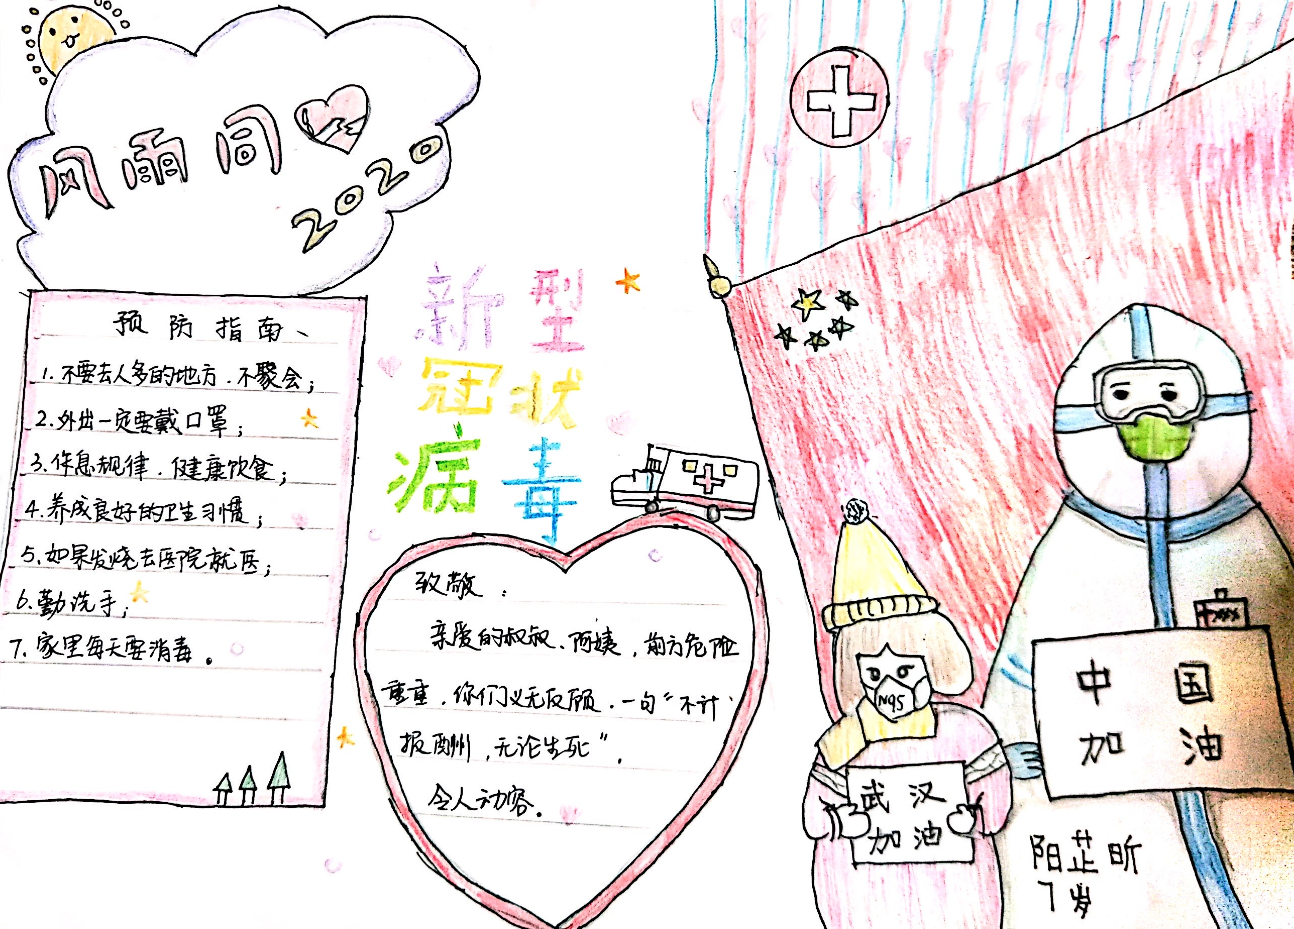 风雨同
2020
新型
冠状
病毒
预防指南、
1.不要去人多的地方.不聚会;
2.外出一定要戴口罩;
3.作息规律.健康饮食;
4.养成良好的卫生习惯;
5.如果发烧去医院就医;
6.勤洗手;
7.家里每天要消毒。
致敬:
亲爱的叔叔、阿姨,前方危险
重重,你们义无反顾.一句“不计
报酬州,无论生死”.
令人动容。
N95
武汉
加油
中国
加油
阳芷昕
7岁